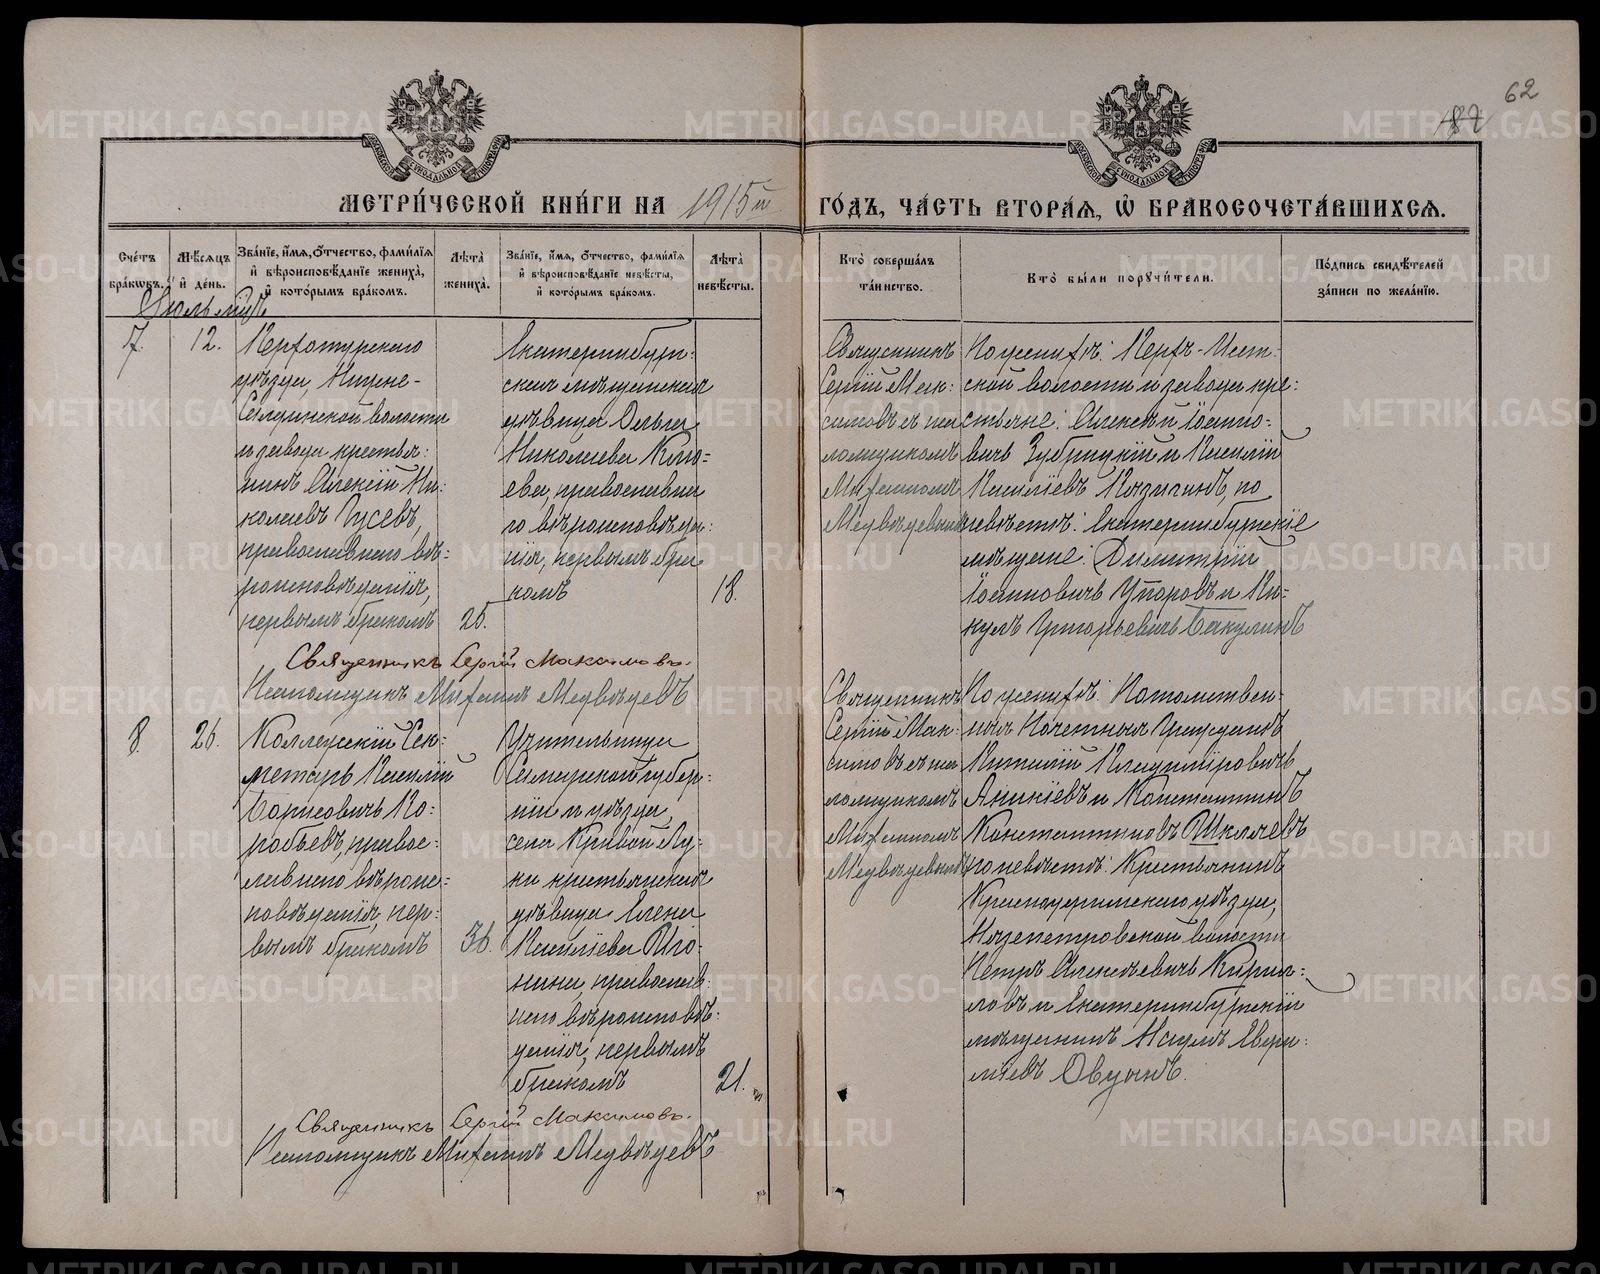 62
82
МЕТРИ́ЧЕСКОЙ КНИ́ГИ НА 1915й ГО́ДЪ, ЧА́СТЬ ВТОРА́Я, Ѡ БРАКОСОЧЕТА́ВШИХСЯ.
Сче́тъ бра́кѡвъ.
Мѣ́сяцъ и де́нь.
Зва́нїе, и́мя, о́тчество, фамилїя
и вѣроисповѣ́данїе жениха̀,
и кото́рымъ бра́комъ.
Лѣ́та
жениха̀.
Зва́нїе, и́мя, о́тчество, фамилїя
и вѣроисповѣ́данїе невѣ́сты,
и кото́рымъ бра́комъ.
Лѣ́та
невѣ́сты.
Кто̀ соверша́лъ
та́инство.
Кто̀ бы́ли порꙋчи́тели.
По́дпись свидѣ́телей
за́писи по жела́нїю.
Іюль мѣс.
7.
12.
Верхотурскаго
уѣзда, Нижне-
Салдинской волости
и завода крестья-
нинъ Алексій Ни-
колаевъ Гусевъ,
православнаго вѣ-
роисповѣданія,
первымъ бракомъ
25.
Екатеринбург-
ская мѣщанская
дѣвица Ольга
Николаева Клю-
ева, православна-
го вѣроисповѣда-
нія, первымъ бра-
комъ
18.
Священникъ
Сергій Мак-
симовъ съ пса-
ломщикомъ
Михаиломъ
Медвѣдевымъ
По женихѣ: Верхъ-Исет-
ской волости и завода кре-
стьяне: Алексѣй Іоанно-
вичъ Зубрицкій и Василій
Василіевъ Козыгинъ, по
невѣстѣ: Екатеринбургскіе
мѣщане: Димитрій
Іоанновичъ Упоровъ и Ви-
кулъ Григорьевичъ Бакулинъ
Священникъ Сергій Максимовъ.
Псаломщикъ Михаилъ Медвѣдевъ
8.
26.
Коллежскій Сек-
ретарь Василій
Борисовичъ Ко-
робьевъ, правос-
лавнаго вѣроис-
повѣданія, пер-
вымъ бракомъ
36.
Учительница
Самарской губер-
ніи и уѣзда,
села Кривой Лу-
ки крестьянская
дѣвица Елена
Василіева Шо-
нина, православ-
наго вѣроисповѣ-
данія, первымъ
бракомъ
21.
Священникъ
Сергій Мак-
симовъ съ пса-
ломщикомъ
Михаиломъ
Медвѣдевымъ
По женихѣ: Потомствен-
ный Почетный Гражданинъ
Виталій Владиміровичъ
Аникіевъ и Константинъ
Константиновъ Шкляевъ
по невѣстѣ: Крестьянинъ
Красноуфимскаго уѣзда,
Нязепетровской волости
Петръ Алексѣевичъ Кирил-
ловъ и Екатеринбургскій
мѣщанинъ Наумъ
Священникъ Сергій Максимовъ.
Псаломщикъ Михаилъ Медвѣдевъ